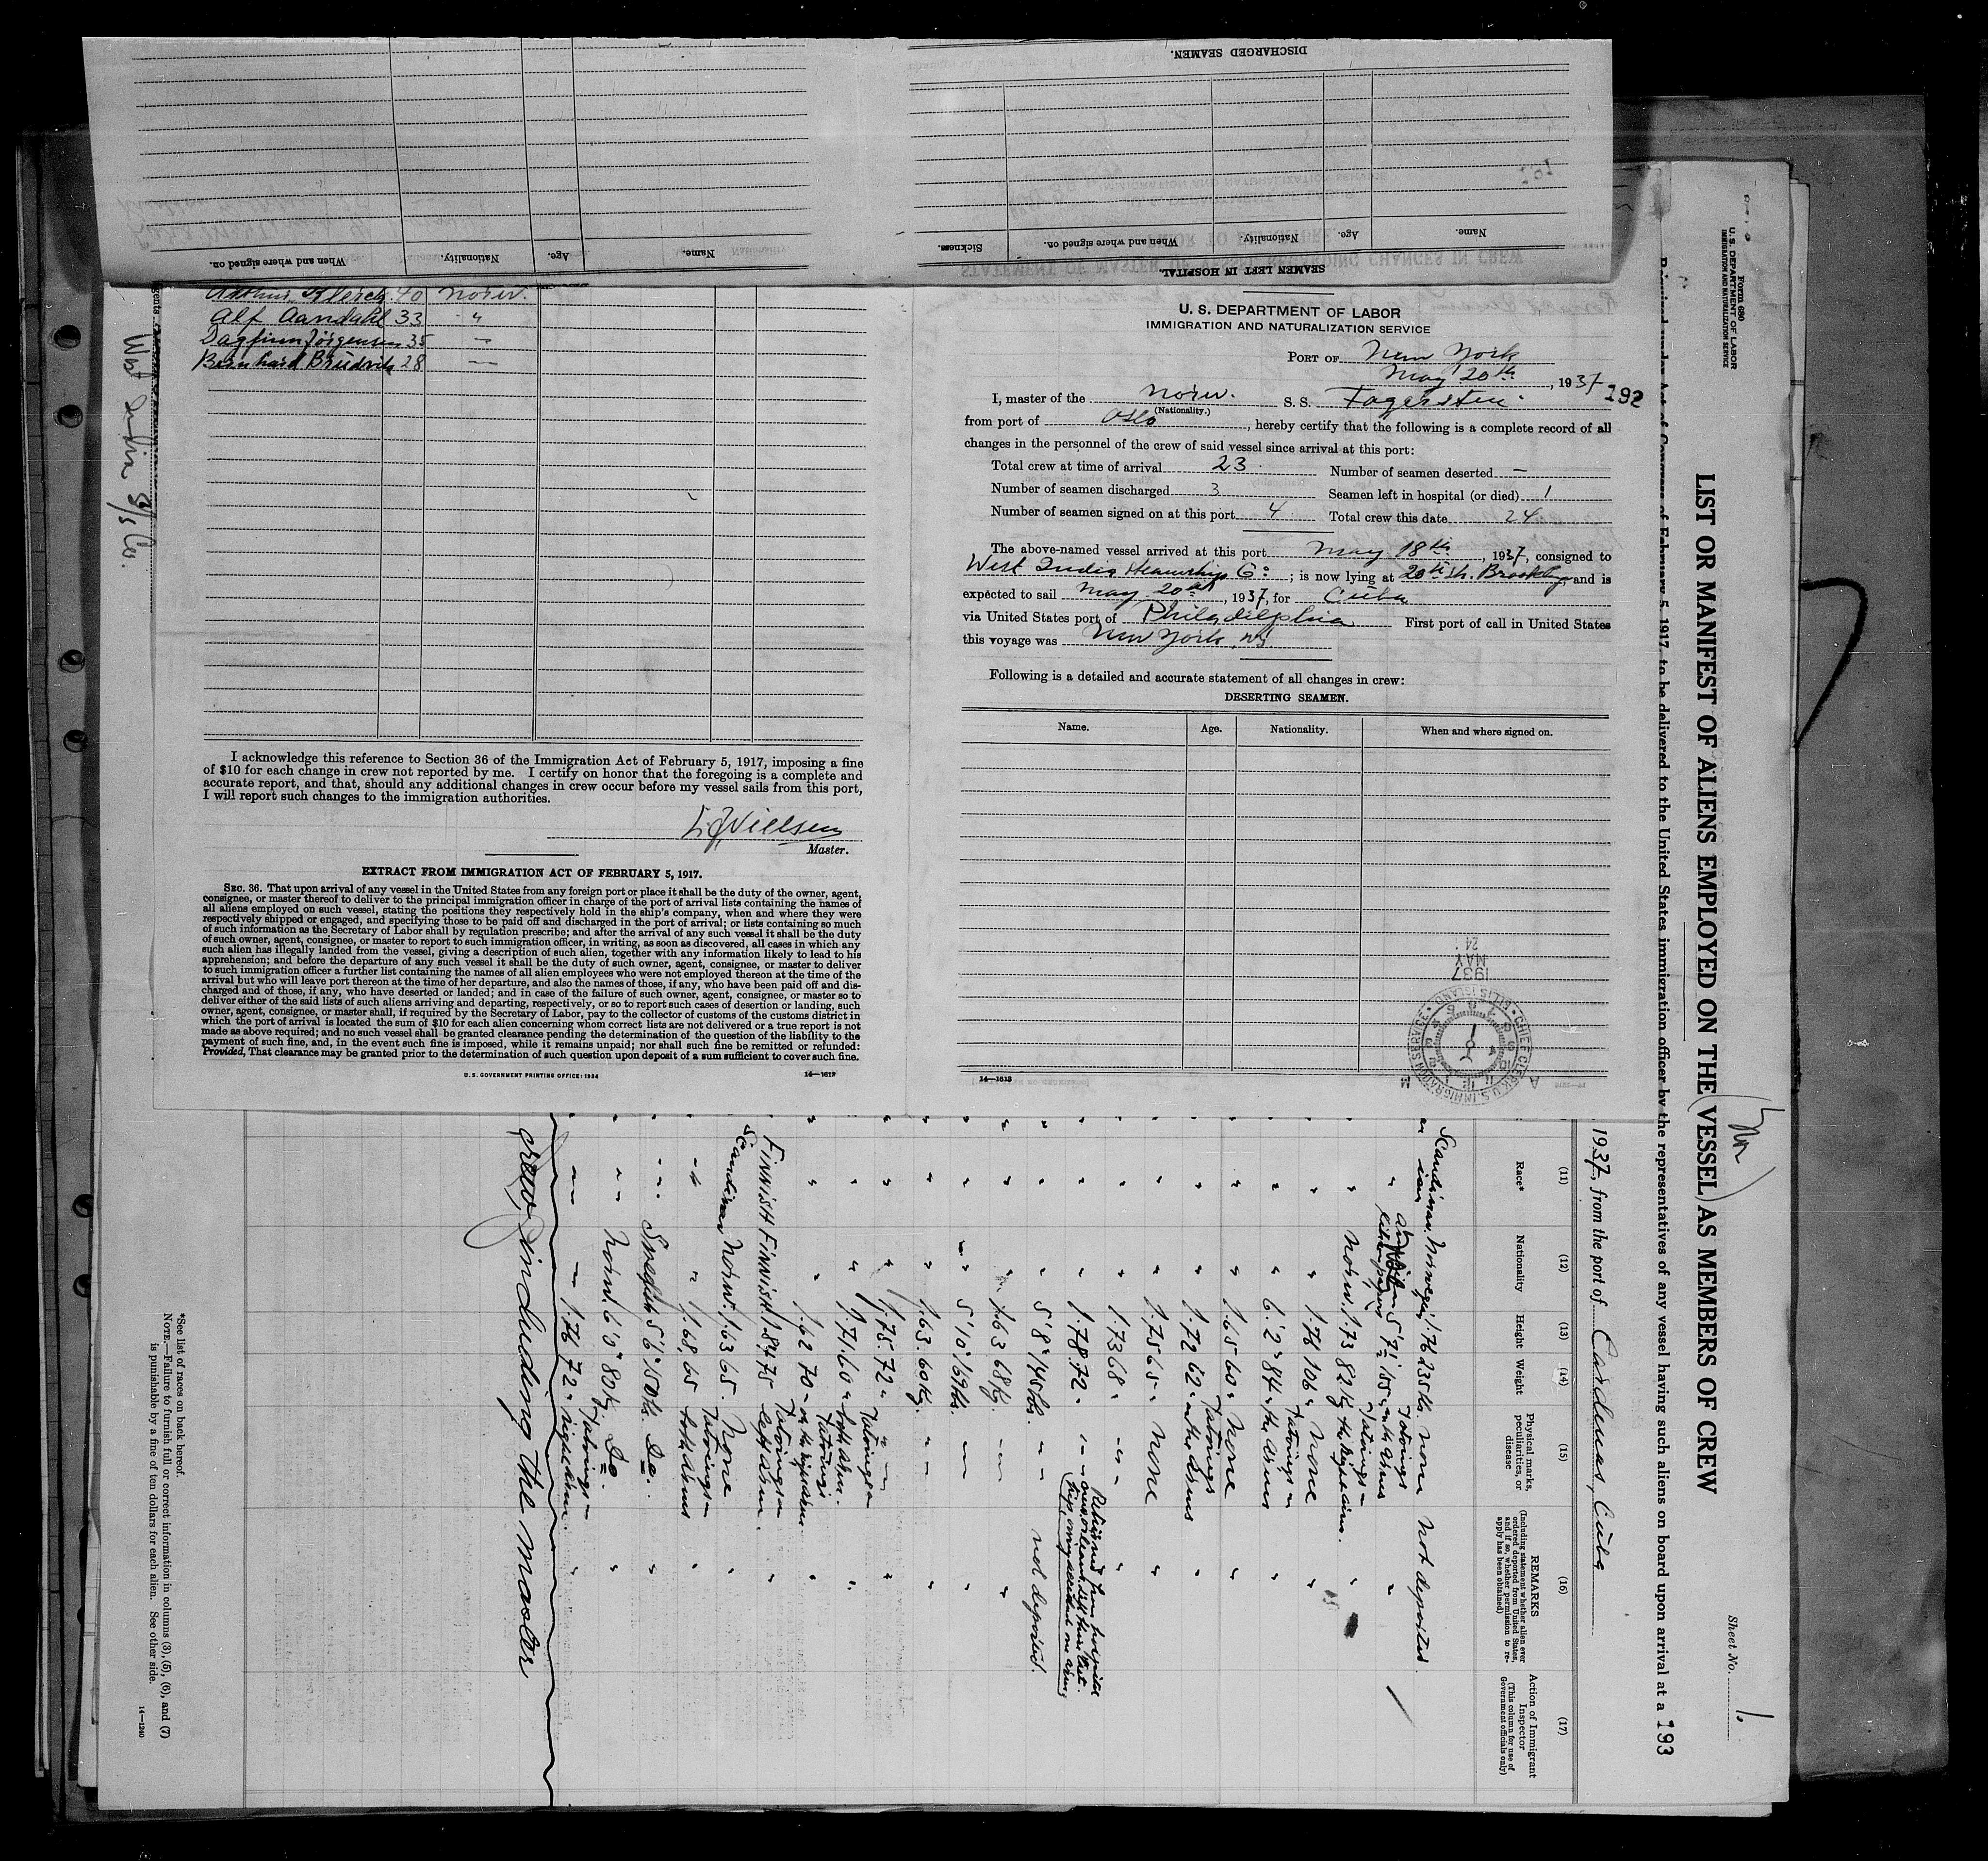 DISCHARGED SEAMEN.
Name.
Age.
Nationality.
When and where signed on.
SEAMEN LEFT IN HOSPITAL.
Name.
Age.
Nationality.
When and where signed on.
Sickness.
40 Norw.
Alf Aandahl 33 "
Dagfinn Jörgensen 35 —
Bernhard 28 —
West India S/S Co.
I acknowledge this reference to Section 36 of the Immigration Act of February 5, 1917, imposing a fine
of $10 for each change in crew not reported by me. I certify on honor that the foregoing is a complete and
accurate report, and that, should any additional changes in crew occur before my vessel sails from this port,
I will report such changes to the immigration authorities.
Nielsen
Master.
EXTRACT FROM IMMIGRATION ACT OF FEBRUARY 5, 1917.
SEC. 36. That upon arrival of any vessel in the United States from any foreign port or place it shall be the duty of the owner, agent,
consignee, or master thereof to deliver to the principal immigration officer in charge of the port of arrival lists containing the names of
all aliens employed on such vessel, stating the positions they respectively hold in the ship's company, when and where they were
respectively shipped or engaged, and specifying those to be paid off and discharged in the port of arrival; or lists containing so much
of such information as the Secretary of Labor shall by regulation prescribe; and after the arrival of any such vessel it shall be the duty
of such owner, agent, consignee, or master to report to such immigration officer, in writing, as soon as discovered, all cases in which any
such alien has illegally landed from the vessel, giving a description of such alien, together with any information likely to lead to his
apprehension; and before the departure of any such vessel it shall be the duty of such owner, agent, consignee, or master to deliver
to such immigration officer a further list containing the names of all alien employees who were not employed thereon at the time of the
arrival but who will leave port thereon at the time of her departure, and also the names of those, if any, who have been paid off and dis-
charged and of those, if any, who have deserted or landed; and in case of the failure of such owner, agent, consignee, or master so to
deliver either of the said lists of such aliens arriving and departing, respectively, or so to report such cases of desertion or landing, such
owner, agent, consignee, or master shall, if required by the Secretary of Labor, pay to the collector of customs of the customs district in
which the port of arrival is located the sum of $10 for each alien concerning whom correct lists are not delivered or a true report is not
made as above required; and no such vessel shall be granted clearance pending the determination of the question of the liability to the
payment of such fine, and, in the event such fine is imposed, while it remains unpaid; nor shall such fine be remitted or refunded:
Provided, That clearance may be granted prior to the determination of such question upon deposit of a sum sufficient to cover such fine.
U. S. GOVERNMENT PRINTING OFFICE: 1934
U. S. DEPARTMENT OF LABOR
IMMIGRATION AND NATURALIZATION SERVICE
PORT OF New York
May 20th, 1937
192
I, master of the Norw. S. S. Fagersten
(Nationality.)
from port of Oslo, hereby certify that the following is a complete record of all
changes in the personnel of the crew of said vessel since arrival at this port:
Total crew at time of arrival 23 Number of seamen deserted —
Number of seamen discharged 3 Seamen left in hospital (or died) 1
Number of seamen signed on at this port 4 Total crew this date 24
The above-named vessel arrived at this port May 18th, 1937, consigned to
West India Steamship Co; is now lying at 20th St. Brooklyn and is
expected to sail May 20th, 1937, for Cuba
via United States port of Philadelphia First port of call in United States
this voyage was New York, NY.
Following is a detailed and accurate statement of all changes in crew:
DESERTING SEAMEN.
Name. Age. Nationality. When and where signed on.
1937
MAY
24
CHIEF CLERK U.S. IMMIGRATION SERVICE • ELLIS ISLAND
14—1613
Form 680
U. S. DEPARTMENT OF LABOR
IMMIGRATION AND NATURALIZATION SERVICE
Sheet No. 1.
LIST OR MANIFEST OF ALIENS EMPLOYED ON THE VESSEL AS MEMBERS OF CREW
to be delivered to the United States immigration officer by the representatives of any vessel having such aliens on board upon arrival at a
193
1937, from the port of Cardenas, Cuba
(11) (12) (13) (14) (15) (16) (17)
Race*
Nationality
Height
Weight
Physical marks, peculiarities, or disease
REMARKS
(Including statement whether alien ever ordered deported from United States, and if so, whether permission to re-apply has been obtained)
Action of Immigrant Inspector
(This column for use of Government officials only)
Norwegian 1.76 235 lbs. none not deported.
" 5'7" 155 " Tatoings on the arms "
" Norw. 1.73 82 kg "
" " 1.76 106 " None "
" " 6'2" 84 " Tatoings on the arms "
" " 1.65 60 " None "
" " 1.72 62 " Tatoings on the arms "
" " 1.75 65 " None "
" " 1.73 68 " "
" " 1.78 72 "
" " 5'8" 145 lbs. not deported.
" " 1.63 68 kg. "
" " 5'10" 169 lbs. "
" " 1.63 60 kg. "
" " 1.75 72 "
" " 1.71 60 " Tatoings on both arms. "
" " 1.62 70 " Tatoings on the right arm "
FINNISH FINNISH 1.84 75 Tatoings on left arm. "
Norw. 1.63 65 None "
" 1.68 65 Tatoings on both arms "
Swedish 5'6" 150 lbs. Do. "
Norw. 6'0" 80 kg. Do. "
1.76 72 " Tatoings on right arm. "
crew, including the master
*See list of races on back hereof.
NOTE.—Failure to furnish full or correct information in columns (3), (5), (6), and (7)
is punishable by a fine of ten dollars for each alien. See other side.
14—1240